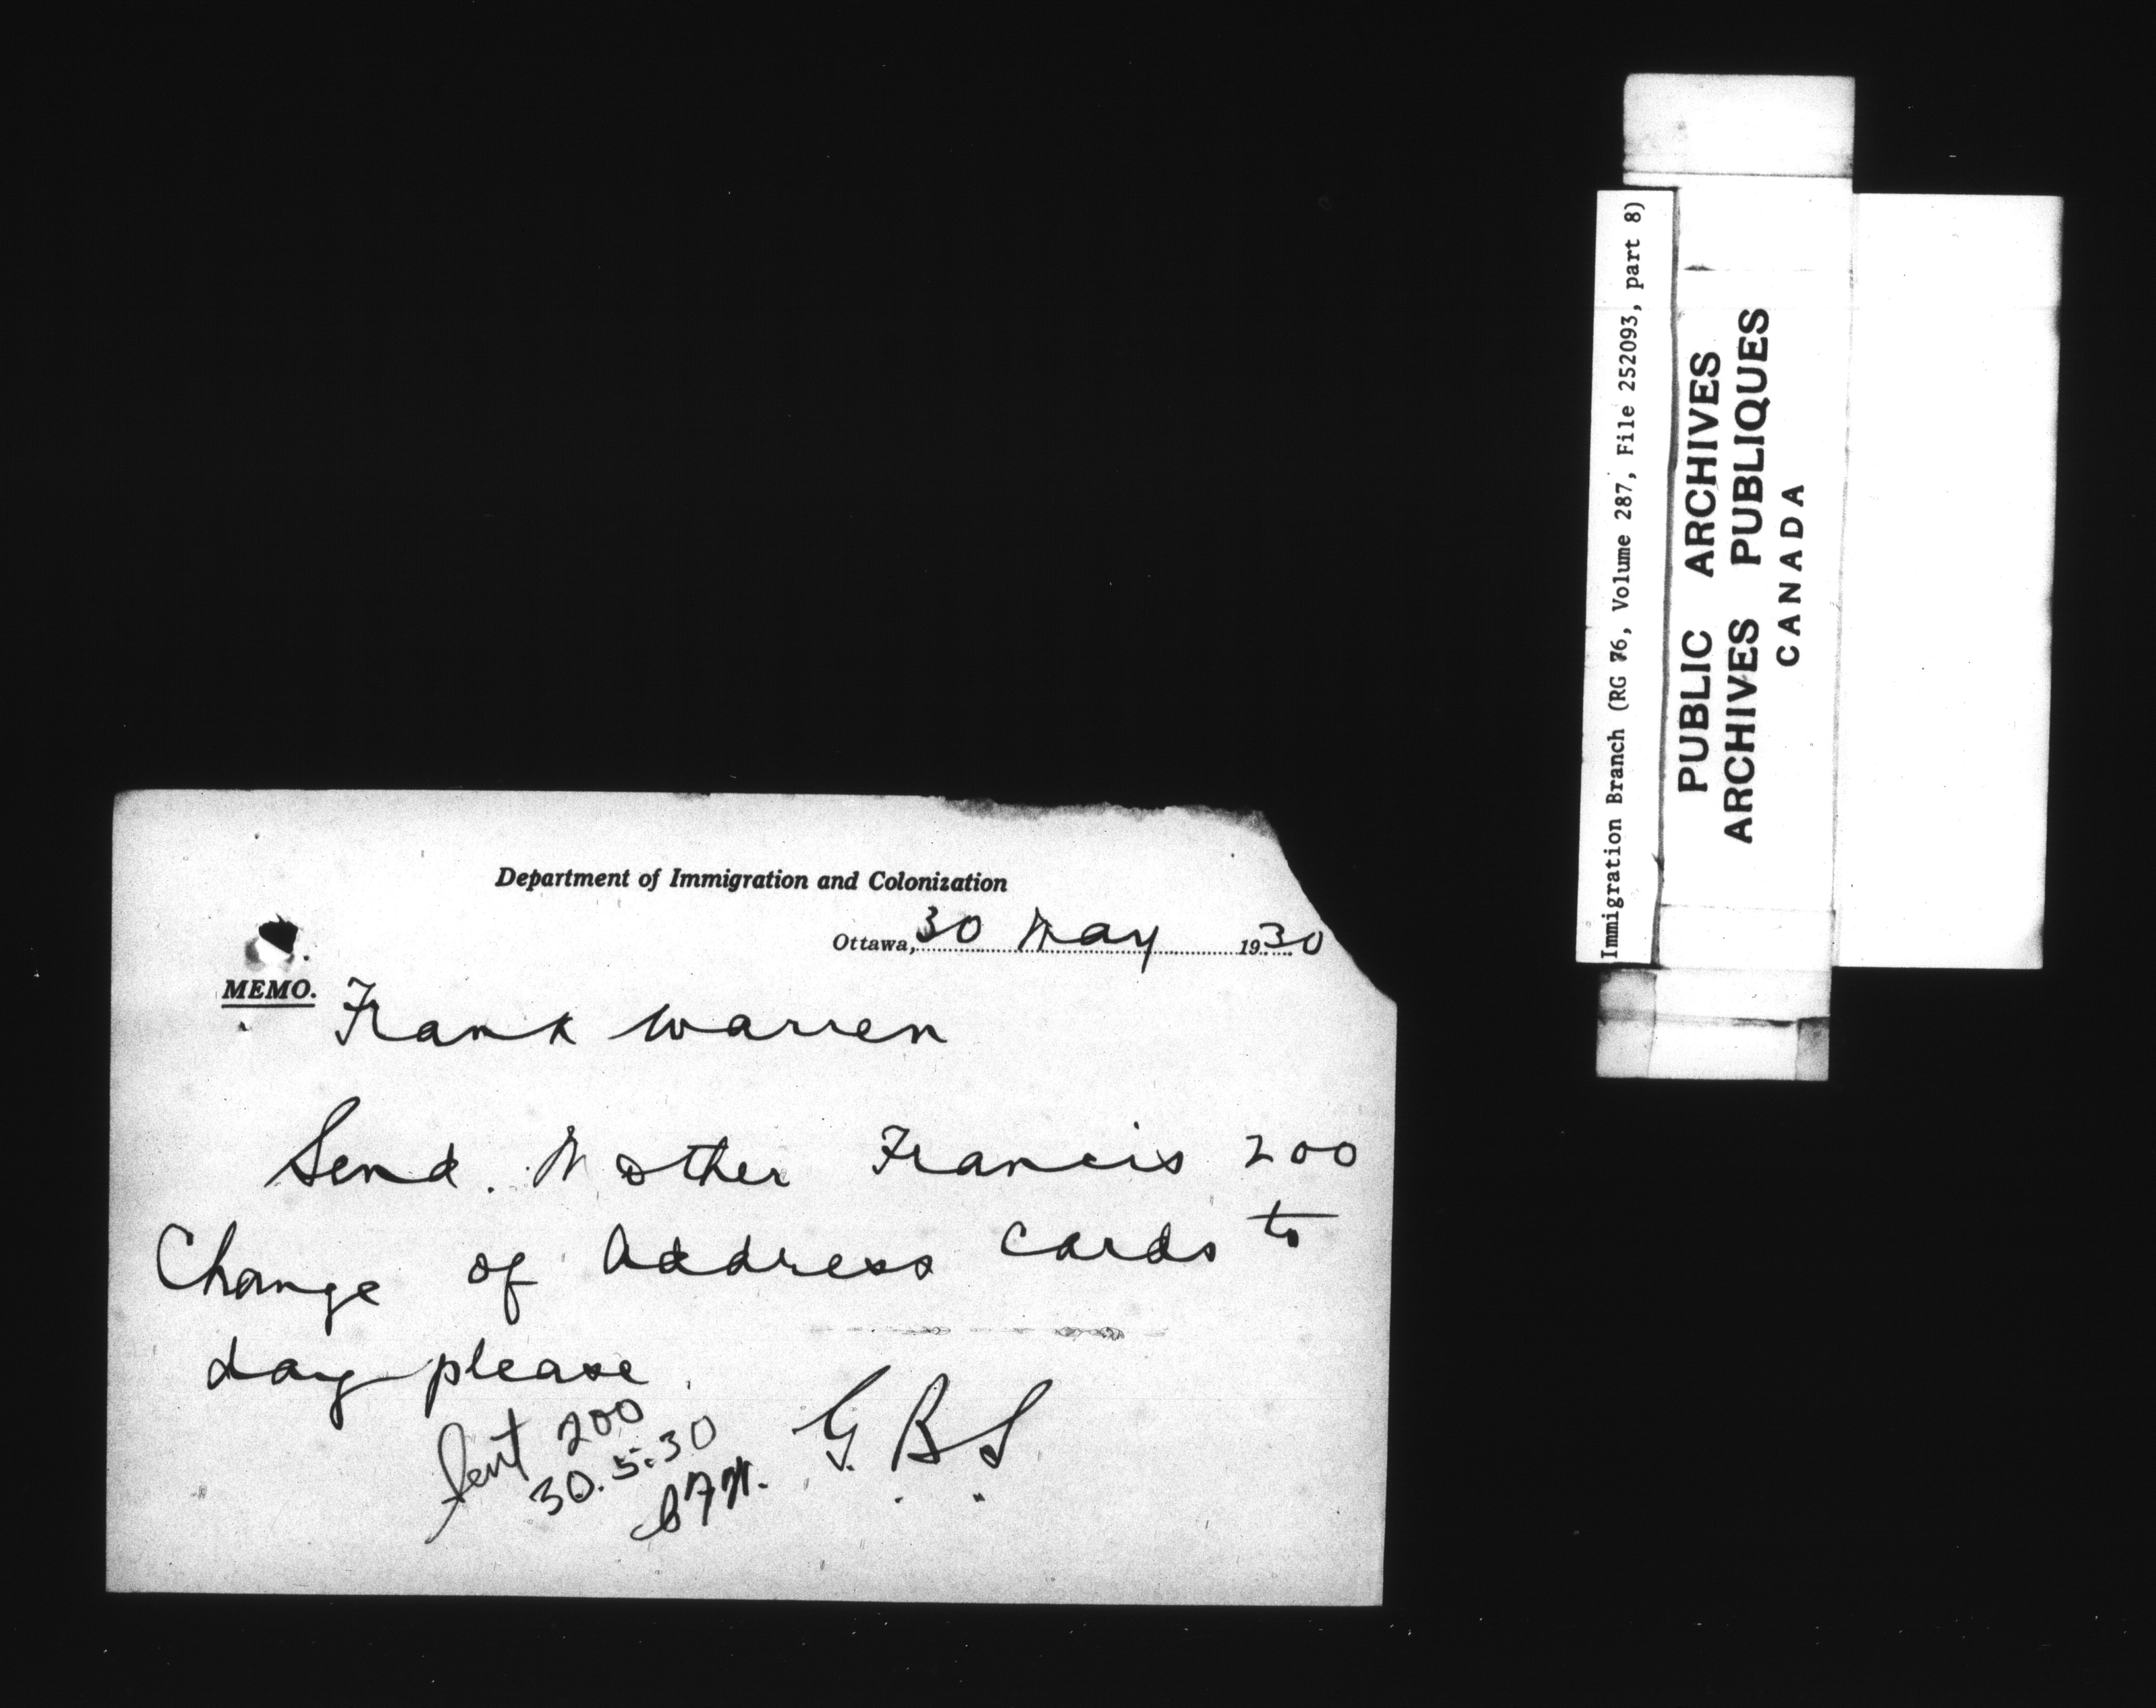 Department of Immigration and Colonization
Ottawa, 30 May 1930
MEMO. Frank Warren
Send. Mother Francis 200
Change of Address cards to
day please.
G.B.S.
Sent 200
30.5.30
Immigration Branch (RG 76, Volume 287, File 252093, part 8)
PUBLIC ARCHIVES
ARCHIVES PUBLIQUES
CANADA